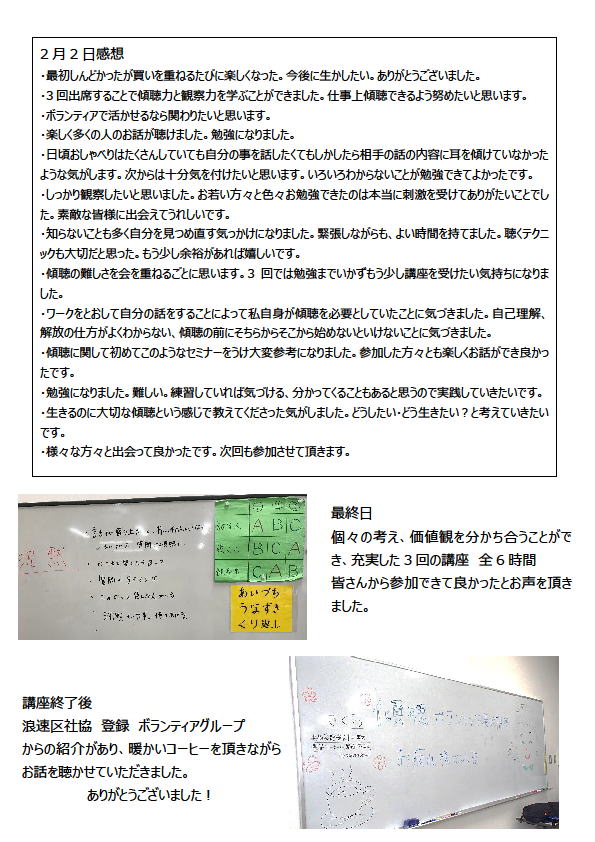 ２月２日感想
・最初しんどかったが買いを重ねるたびに楽しくなった。今後に生かしたい。ありがとうございました。
・３回出席することで傾聴力と観察力を学ぶことができました。仕事上傾聴できるよう努めたいと思います。
・ボランティアで活かせるなら関わりたいと思います。
・楽しく多くの人のお話が聴けました。勉強になりました。
・日頃おしゃべりはたくさんしていても自分の事を話したくてもしかしたら相手の話の内容に耳を傾けていなかった
ような気がします。次からは十分気を付けたいと思います。いろいろわからないことが勉強できてよかったです。
・しっかり観察したいと思いました。お若い方々と色々お勉強できたのは本当に刺激を受けてありがたいことでし
た。素敵な皆様に出会えてうれしいです。
・知らないことも多く自分を見つめ直す気っかけになりました。緊張しながらも、よい時間を持てました。聴くテクニ
ックも大切だと思った。もう少し余裕があれば嬉しいです。
・傾聴の難しさを会を重ねるごとに思います。３回では勉強までいかずもう少し講座を受けたい気持ちになりま
した。
・ワークをとおして自分の話をすることによって私自身が傾聴を必要としていたことに気づきました。自己理解、
解放の仕方がよくわからない、傾聴の前にそちらからそこから始めないといけないことに気づきました。
・傾聴に関して初めてこのようなセミナーをうけ大変参考になりました。参加した方々とも楽しくお話ができ良かっ
たです。
・勉強になりました。難しい。練習していれば気づける、分かってくることもあると思うので実践していきたいです。
・生きるのに大切な傾聴という感じで教えてくださった気がしました。どうしたい・どう生きたい？と考えていきたい
です。
・様々な方々と出会って良かったです。次回も参加させて頂きます。
A B C
B C A
C A B
あいづち
うなずき
くり返し
最終日
個々の考え、価値観を分かち合うことがで
き、充実した３回の講座　全６時間
皆さんから参加できて良かったとお声を頂き
ました。
講座終了後
浪速区社協　登録　ボランティアグループ
からの紹介があり、暖かいコーヒーを頂きながら
お話を聴かせていただきました。
ありがとうございました！